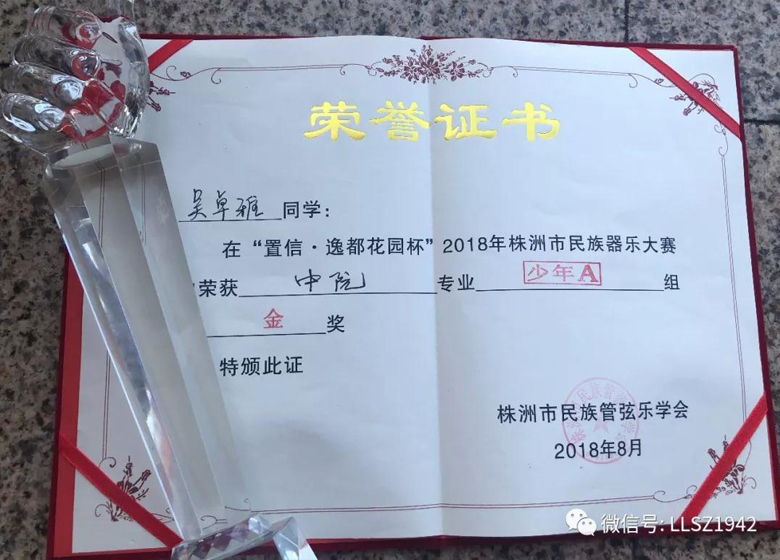 荣誉证书
吴卓雅同学：
在“置信·逸都花园杯”2018年株洲市民族器乐大赛
荣获中阮专业少年A组
金奖
特颁此证
株洲市民族管弦乐学会
2018年8月
微信号: LLSZ1942